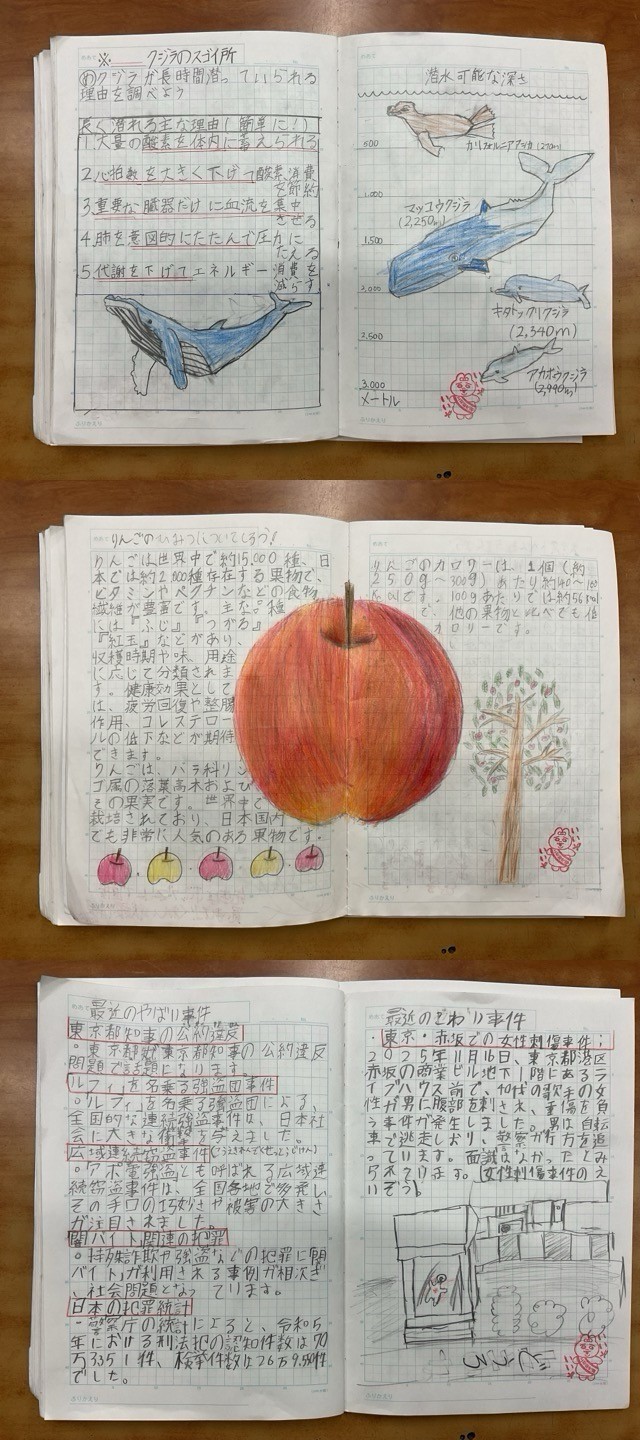 ※ クジラのスゴイ所
めクジラが長時間潜っていられる
理由を調べよう
長く潜れる主な理由(簡単に!)
1.大量の酸素を体内に蓄えられる
2.心拍数を大きく下げて酸素消費
を節約
3.重要な臓器だけに血流を集中
させる
4.肺を意図的にたたんで圧力に
たえる
5.代謝を下げてエネルギー消費を
減らす
ふりかえり
潜水可能な深さ
500
カリフォルニアアシカ
1,000
マッコウクジラ
(2,250m)
1,500
2,000
キタトックリクジラ
(2,340m)
2,500
アカボウクジラ
3,000
メートル
ふりかえり
りんごのひみつについてしろう!
りんごは世界中で約15,000種、日
本では約2,000種存在する果物で、
ビタミンやペクチンなどの食物
繊維が豊富です。主な品種
には『ふじ』『つがる』
『紅玉』などがあり、
収穫時期や味、用途
に応じて分類されま
す。健康効果として
は、疲労回復や整腸
作用、コレステロー
ルの低下などが期待
できます。
りんごは、バラ科リン
ゴ属の落葉高木および
その果実です。世界中で
栽培されており、日本国内
でも非常に人気のある果物です。
ふりかえり
りんごのカロリーは、1個(約
250g~300g)あたり約140~
kcalです。100gあたりでは約56kcal
で、他の果物と比べても低
カロリーです。
ふりかえり
最近のやばい事件
東京都知事の公約違反
・東京都知事の公約違反
問題で話題になります。
「ルフィ」を名乗る強盗団事件
・「ルフィ」を名乗る強盗団による、
全国的な連続強盗事件は、日本社
会に大きな衝撃を与えました。
広域連続窃盗事件
・「アポ電強盗」とも呼ばれる広域連
続窃盗事件は、全国各地で多発し、
その手口の巧妙さや被害の大きさ
が注目されました。
闇バイト関連の犯罪
・特殊詐欺や強盗などの犯罪に闇
バイトが利用される事例が相次ぎ
、社会問題となっています。
日本の犯罪統計
・警察庁の統計によると、令和5
年における刑法犯の認知件数は70
万3351件、検挙件数は26万9,550件
でした。
ふりかえり
最近のこわい事件
・東京・赤坂での女性刺傷事件:
2025年11月16日、東京都港区
赤坂の商業ビル地下1階にあるラ
イブハウス前で、40代の歌手の女
性が男に腹部を刺され、重傷を負
う事件が発生しました。男は自転
車で逃走しおり、警察が行方を追
っています。面識はなかったとみ
られています。女性刺傷事件のえ
いぞう
どうろ
ふりかえり